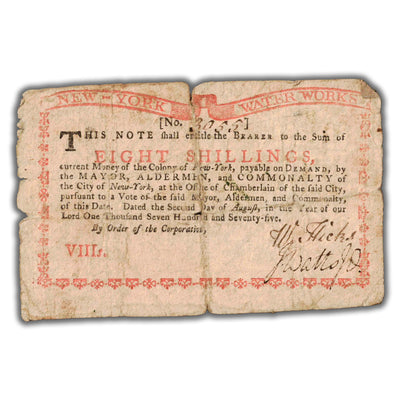 NEW-YORK WATER WORKS
[No. 3255]
THIS NOTE shall entitle the BEARER to the Sum of
EIGHT SHILLINGS,
current Money of the Colony of New-York, payable on DEMAND, by
the MAYOR, ALDERMEN, and COMMONALTY of
the City of New-York, at the Office of Chamberlain of the said City,
pursuant to a Vote of the said Mayor, Aldermen, and Commonalty,
of this Date. Dated the Second Day of August, in the Year of our
Lord One Thousand Seven Hundred and Seventy-five.
By Order of the Corporation,
Wm Hicks
VIIIs.
J Watts Jr